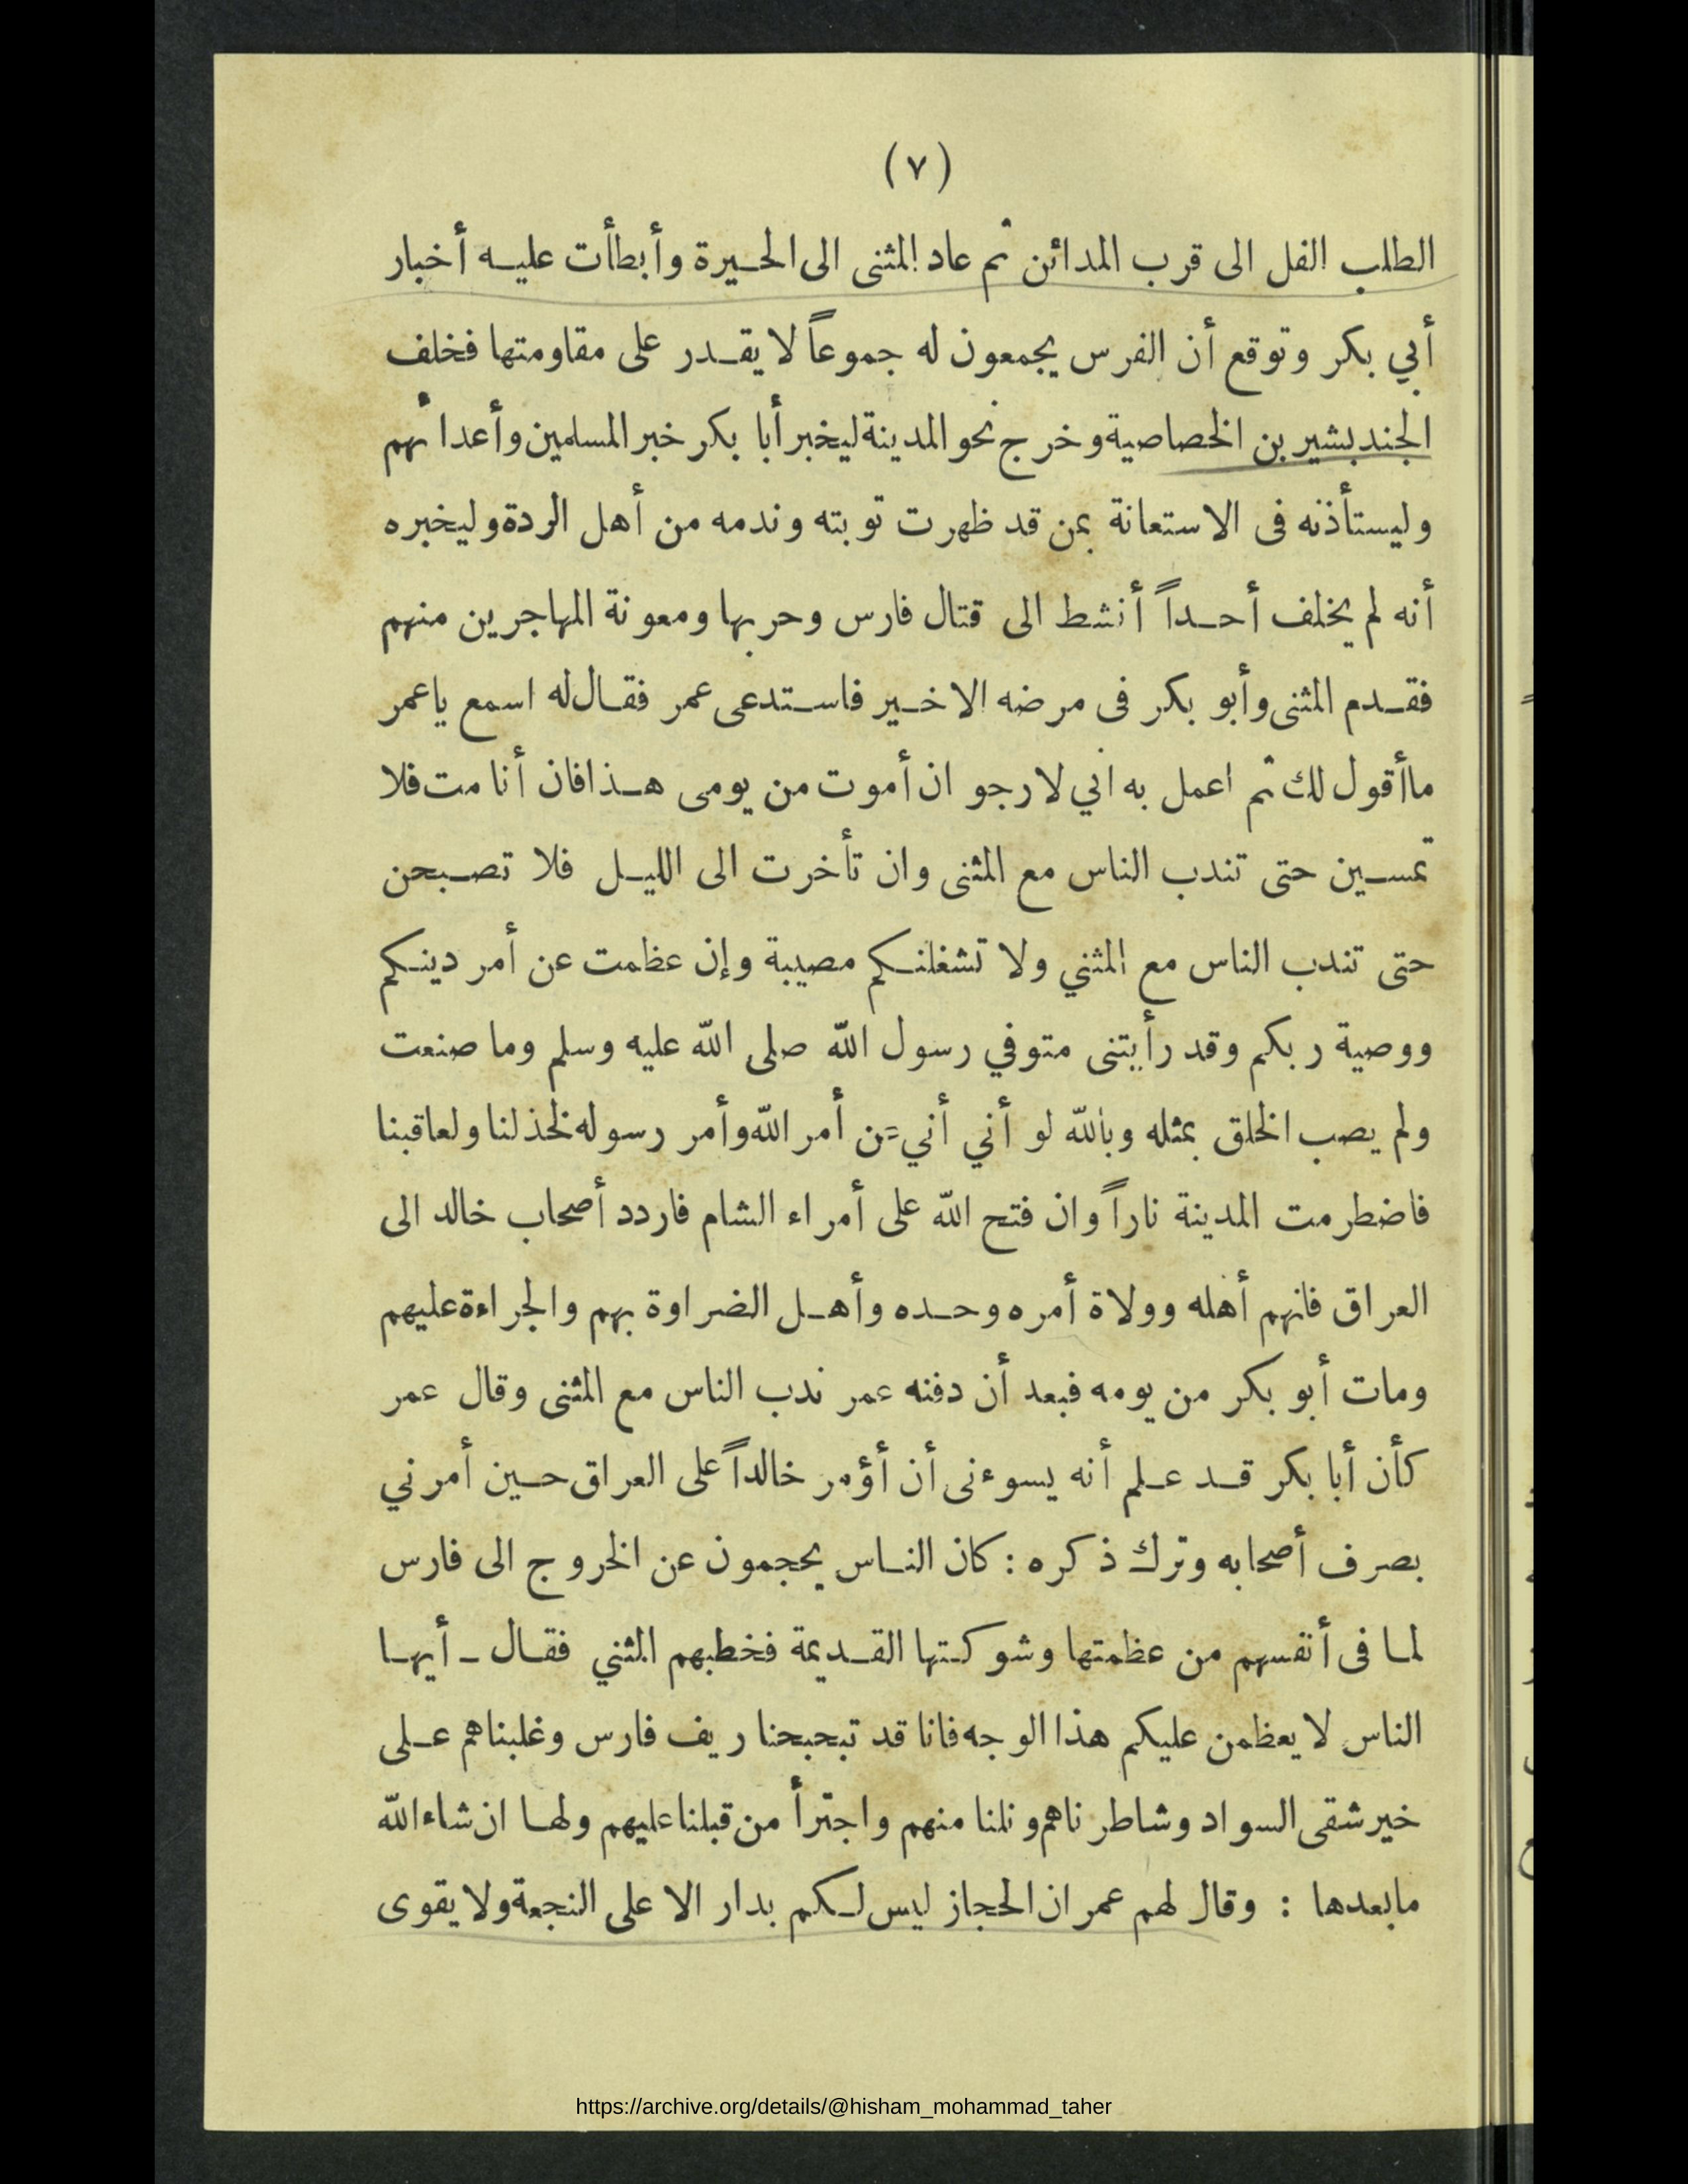 (٧)
الطلب الفل الى قرب المدائن ثم عاد المثنى الى الحيرة وأبطأت عليه أخبار
أبي بكر وتوقع أن الفرس يجمعون له جموعاً لا يقدر على مقاومتها فخلف
الجند بشير بن الخصاصية وخرج نحو المدينة ليخبر أبا بكر خبر المسلمين وأعدائهم
وليستأذنه فى الاستعانة بمن قد ظهرت توبته وندمه من أهل الردة وليخبره
أنه لم يخلف أحداً أنشط الى قتال فارس وحربها ومعونة المهاجرين منهم
فقدم المثنى وأبو بكر فى مرضه الاخير فاستدعى عمر فقال له اسمع ياعمر
ماأقول لك ثم اعمل به اني لارجو ان أموت من يومى هذا فان أنا مت فلا
تمسين حتى تندب الناس مع المثنى وان تأخرت الى الليل فلا تصبحن
حتى تندب الناس مع المثني ولا تشغلنكم مصيبة وإن عظمت عن أمر دينكم
ووصية ربكم وقد رأيتنى متوفي رسول الله صلى الله عليه وسلم وما صنعت
ولم يصب الخلق بمثله وبالله لو أني أني عن أمر الله وأمر رسوله لخذلنا ولعاقبنا
فاضطرمت المدينة ناراً وان فتح الله على أمراء الشام فاردد أصحاب خالد الى
العراق فانهم أهله وولاة أمره وحده وأهل الضراوة بهم والجراءة عليهم
ومات أبو بكر من يومه فبعد أن دفنه عمر ندب الناس مع المثنى وقال عمر
كأن أبا بكر قد علم أنه يسوءنى أن أؤمر خالداً على العراق حين أمرني
بصرف أصحابه وترك ذكره : كان الناس يحجمون عن الخروج الى فارس
لما فى أنفسهم من عظمتها وشوكتها القديمة فخطبهم المثني فقال ـ أيها
الناس لا يعظمن عليكم هذا الوجه فانا قد تبحبحنا ريف فارس وغلبناهم على
خير شقى السواد وشاطرناهم ونلنا منهم واجترأ من قبلنا عليهم ولها ان شاء الله
مابعدها : وقال لهم عمر ان الحجاز ليس لكم بدار الا على النجعة ولا يقوى
https://archive.org/details/@hisham_mohammad_taher